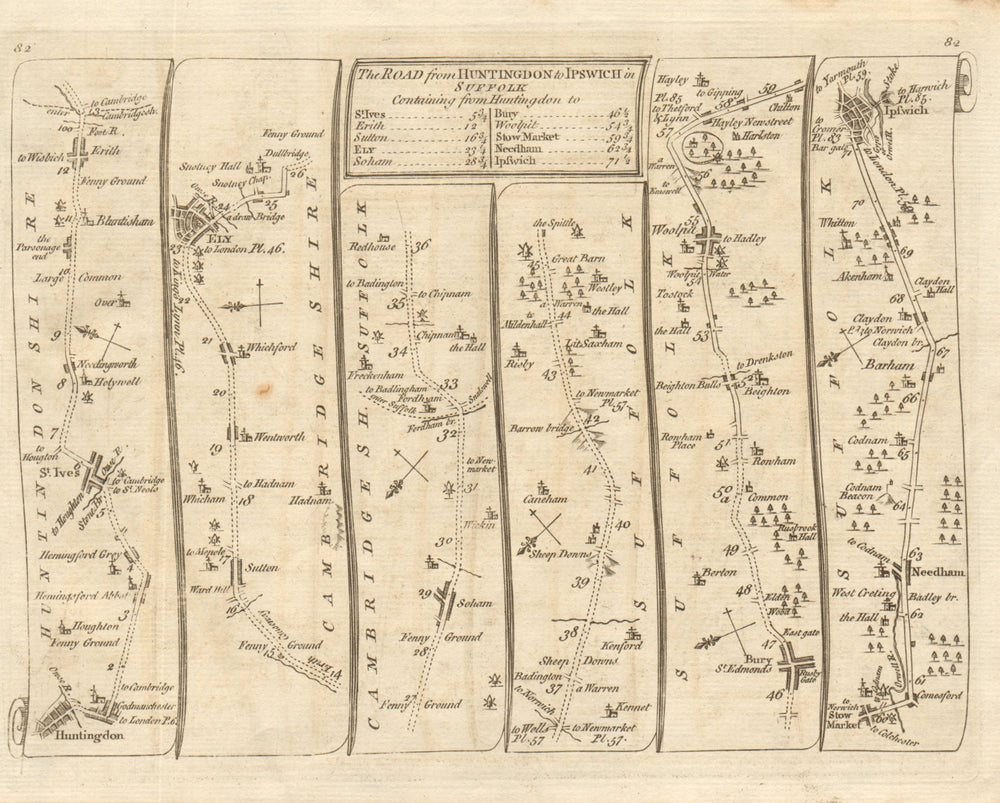 82
82
The ROAD from HUNTINGDON to IPSWICH in
SUFFOLK
Containing from Huntingdon to
St. Ives 5 3/4 Bury 46 1/2
Erith 12 Woolpit 54 3/4
Sutton 16 3/4 Stow Market 59 3/4
ELY 23 1/4 Needham 62 3/4
Soham 28 3/4 Ipswich 71 1/2
to Cambridge
enter Cambridgesh.
13
Foot R.
to Wisbich Erith
12
Fenny Ground
11 Bluntisham
the
Parsonage
end
10
Large Common
Over
9
Needingworth
8 Holywell
7
to
Hougton
6
St. Ives
Ouse R.
to Cambridge
to St. Neots
to Houghton
Stone Br.
5
Hemingford Grey
4
Hemingsford Abbot
3
Houghton
Fenny Ground
2
Ouse R.
to Cambridge
Godmanchester
to London P.6.
Huntingdon
HUNTINDON SHIRE
Fenny Ground
Dullbridge
26
Snotney Hall
Snotney Chap.
25
Ouse R. 24
a draw Bridge
ELY
23 to London Pl. 46.
to Lynn Pl. 46
22
21 Whichford
20
19 Wentworth
to Hadnam
18
Whicham
Hadnam
to Mepole
17
Sutton
Ward Hill
16
Causway
Fenny 15 Ground
Erith
14
CAMBRIDGE SHIRE
36
Redhouse
to Badington
35 to Chipnam
Chipnam
the Hall
34
Freckenham
33
to Badlingham
Fordham
enter Suffolk
Snailwell
Fordham br.
32
to New-
market
31
Wickin
30
29
Soham
Fenny Ground
28
27
Fenny Ground
CAMBRIDGE SH. SUFFOLK
the Spittle
45
Great Barn
Westley
a Warren
44 the Hall
to
Mildenhall
Lit. Saxham
Risby
43
to Newmarket
Pl. 57
42
Barrow bridge
41
Caneham
40
Sheep Downs
39
38
Kenford
Sheep Downs
Badington
37 a Warren
to Norwich
Kennet
to Wells to Newmarket
Pl. 57 Pl. 57.
SUFFOLK
Hayley
to Gipping
59
Pl. 85 58
to Thetford Chilton
& Lynn
57 Hayley Newstreet
Harlston
a
Warren
56
to
55
Woolpit
to Hadley
Woolpit Water
54
Tostock
the Hall
53
to Drenkston
Beighton Bulls 52
Beighton
Rowham 51
Place
Rowham
50 Common
a
Rusbrook
Hall
49
Berton
48 Elden
Wood
47 East gate
Bury
St. Edmonds
Risby
Gate
46
SUFFOLK
to Yarmouth
Pl. 59.
Stoke
to Harwich
Pl. 85.
Ipswich
to
Cromer
Pl. 83
Bar gate
Orwell R.
71 to London Pl.
70
Whitton
69
Akenham
Claydon
Hall
68
Claydon
P. 83 to Norwich
Claydon br.
67
Barham
66
Codnam
65
Codnam
Beacon
64
63
to Codnam
Needham
West Creting Badley br.
62
the Hall
Orwell R.
61
to Codnam
to
Norwich
Comesford
Stow
Market 60
to Colchester
SUFFOLK